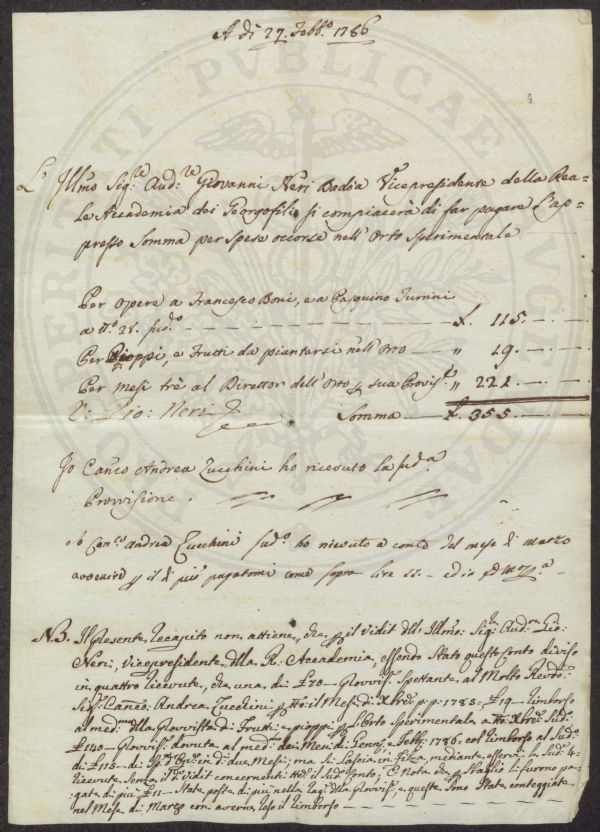 A dì 27. Febb.º 1786
4
L' Illmo Sig.re Aud.re Giovanni Neri Badia Vicepresidente della Rea-
le Accademia dei Georgofili si compiacerà di far pagare l'ap-
presso Somma per spese occorse nell'Orto Sperimentale
Per Opere a Francesco Boni, e a Pasquino Turrini
a t.º 28. sud.º £. 115.
Per Pioppi, e Frutti da piantarsi nell'Orto " 19.
Per Mesi trè al Director dell'Orto sua Provis.e " 221.
V: Gio: Neri Somma £. 355
Io Can.co Andrea Zucchini ho ricevuto la sud.a
Provvisione.
Io Can.co Andrea Zucchini sud.º ho ricevuto a conto del mese di Marzo
avvenire il di più pagatomi come sopra lire 11.
N.B. Il presente Recapito non attiene, che il vidit dell' Illmo: Sig.re Aud.re Gio:
Neri, Vicepresidente della R. Accademia, essendo Stato questo Conto diviso
in quattro ricevute, che una di £70 Provvis. Spettante al Molto Rev.do
Sig.r Can.co Andrea Zucchini il Mese di Xbre p.p. 1785 £19 rimborso
al med.mo della Provvista di Frutti e pioppi Orto Sperimentale a t.to Xbre Sud.
£140 Provvis. dovuta al med.º dei Mesi di Genn. e Febb. 1786. col rimborso al Sud.º
di £115 di in due Mesi; ma si lascia in filza, mediante esservi le Sud.e 4
ricevute, senza il vidit concernenti Sud.º Conto; E Nota che Sbaglio li furono pa-
gate di più £11 State poste di più nella sua Provvis. e queste Sono State conteggiate
nel Mese di Marzo con averne reso il rimborso
PROSPERITATI PUBLICAE AUGENDAE